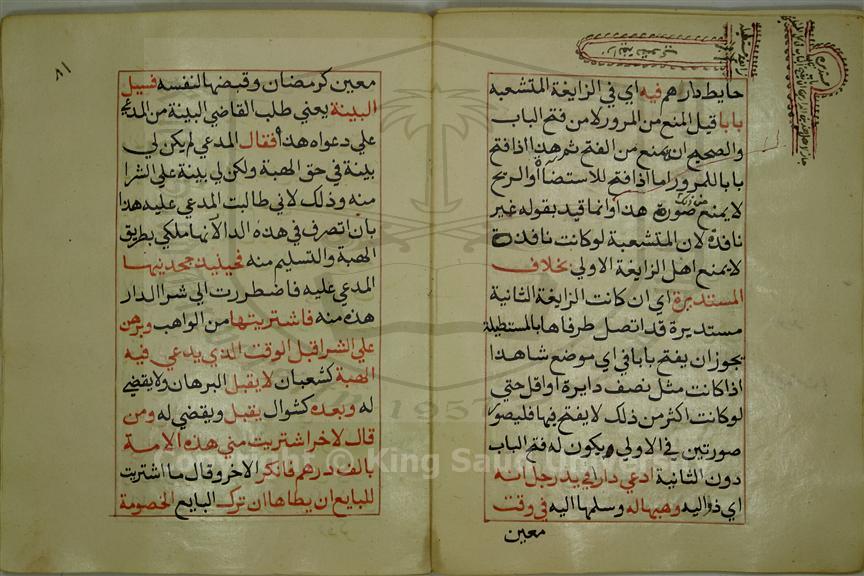 حايط دارهم فيه اي في الزايغة المتشعبة
بابا قيل المنع من المرور لا من فتح الباب
والصحيح ان يمنع من الفتح ثم هذا اذا فتح
بابا للمرور اما اذا فتح للاستضاأ والريح
لا يمنع صورة هذا وانما قيد بقوله غير
نافذة لان المتشعبة لو كانت نافذة
لا يمنع اهل الزايغة الاولي بخلاف
المستديرة اي ان كانت الزايغة الثانية
مستديرة قد اتصل طرفاها بالمستطيلة
يجوز ان يفتح بابا في اي موضع شا هذا
اذا كانت مثل نصف دايرة او اقل حتي
لو كانت اكثر من ذلك لا يفتح فيها فليصور
صورتين في الاولي يكون له فتح الباب
دون الثانية ادعي دارا في يد رجل انه
اي ذو اليد وهبها له وسلمها اليه في وقت
معين
٨١
معين كرمضان وقبضها لنفسه فسيل
البينة يعني طلب القاضي البينة من المدعي
علي دعواه هذا فقال المدعي لم يكن لي
بينة في حق الهبة ولكن لي بينة علي الشرا
منه وذلك لاني طالبت المدعي عليه هذا
بان اتصرف في هذه الدار لانها ملكي بطريق
الهبة والتسليم منه فحينيذ جحدنيها
المدعي عليه فاضطررت الي شرا الدار
هذه منه فاشتريتها من الواهب وبرهن
علي الشرا قبل الوقت الذي يدعي فيه
الهبة كشعبان لا يقبل البرهان ولا يقضي
له وبعده كشوال يقبل ويقضي له ومن
قال لاخر اشتريت مني هذه الامة
بالف درهم فانكر الاخر وقال ما اشتريت
للبايع ان يطاها ان ترك البايع الخصومة
Copyright © King Saud University
1957